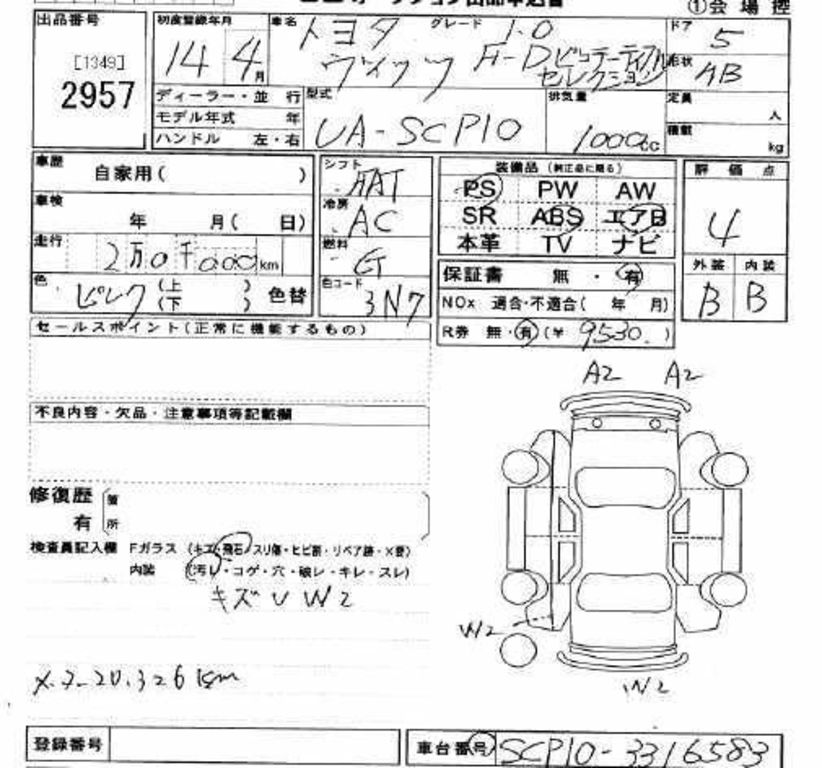 ①会 場 控
出品番号
[1349]
2957
初度登録年月
14 4月
車名 グレード
トヨタ 1.0
ヴィッツ F-D ビューティフル
セレクション
ドア 5
形状 HB
ディーラー・並 行
モデル年式 年
ハンドル 左・右
型式
UA-SCP10
排気量
1000cc
定員 人
積載 kg
車歴 自家用( )
車検 年 月( 日)
走行 2万0千000km
色 (上 )
(下 ) 色替
シフト FAT
冷房 AC
燃料 G
色コード 3N7
装備品 (純正品に限る)
PS PW AW
SR ABS エアB
本革 TV ナビ
評 価 点
4
外装 内装
B B
保証書 無 ・ 有
NOx 適合・不適合( 年 月)
R券 無・有(¥ 9530. )
セールスポイント(正常に機能するもの)
不良内容・欠品・注意事項等記載欄
修復歴 箇
有 所
検査員記入欄 Fガラス (キズ・飛石・スリ傷・ヒビ割・リペア跡・X要)
内装 (汚レ・コゲ・穴・破レ・キレ・スレ)
キズ U W2
A2 A2
W2
W2
登録番号
車台番号 SCP10-3316583